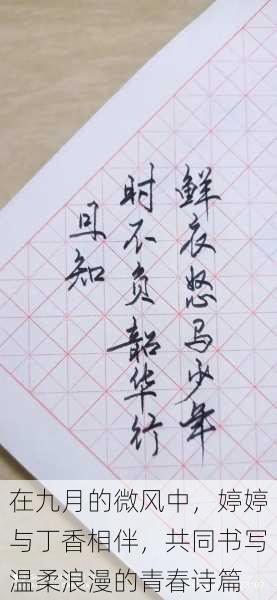 鲜衣怒马少年
时不负韶华行
且知
在九月的微风中，婷婷
与丁香相伴，共同书写
温柔浪漫的青春诗篇